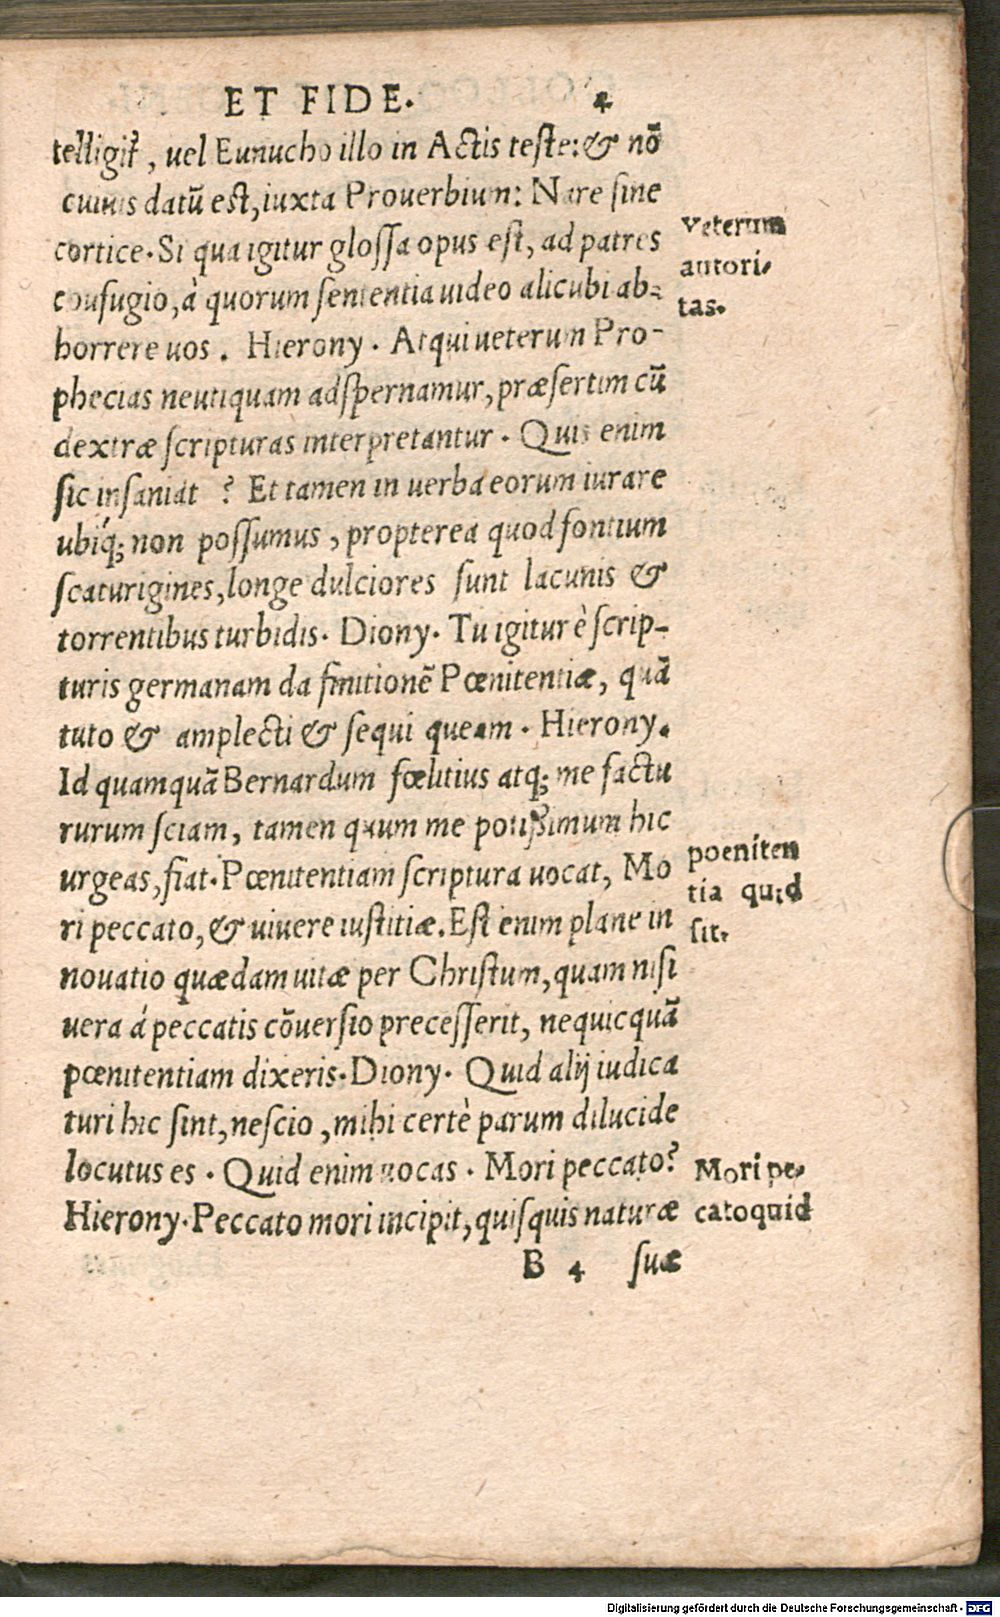 ET FIDE. 4
telligit̃, uel Eunucho illo in Actis teste: & nō
cuiuis datū est, iuxta Prouerbium: Nare sine
cortice. Si qua igitur glossa opus est, ad patres
confugio, à quorum sententia uideo alicubi ab=
horrere uos. Hierony. Atqui ueterum Pro-
phecias neutiquam adspernamur, præsertim cū
dextræ scripturas interpretantur. Quis enim
sic insaniat ? Et tamen in uerba eorum iurare
ubiq́; non possumus, propterea quod fontium
scaturigines, longe dulciores sunt lacunis &
torrentibus turbidis. Diony. Tu igitur è scrip-
turis germanam da finitionē Pœnitentiæ, quā
tuto & amplecti & sequi queam. Hierony.
Id quamquā Bernardum fœlitius atq; me factu
rurum sciam, tamen quum me potißimum hic
urgeas, fiat. Pœnitentiam scriptura uocat, Mo
ri peccato, & uiuere iustitiæ. Est enim plane in
nouatio quædam uitæ per Christum, quam nisi
uera á peccatis cōuersio precesserit, nequicquā
pœnitentiam dixeris. Diony. Quid alij iudica
turi hic sint, nescio, mihi certè parum dilucide
locutus es. Quid enim uocas. Mori peccato?
Hierony. Peccato mori incipit, quisquis naturæ
B 4 suæ
Veterum
autori-
tas.
poeniten
tia quid
sit.
Mori pe-
cato quid
Digitalisierung gefördert durch die Deutsche Forschungsgemeinschaft - DFG